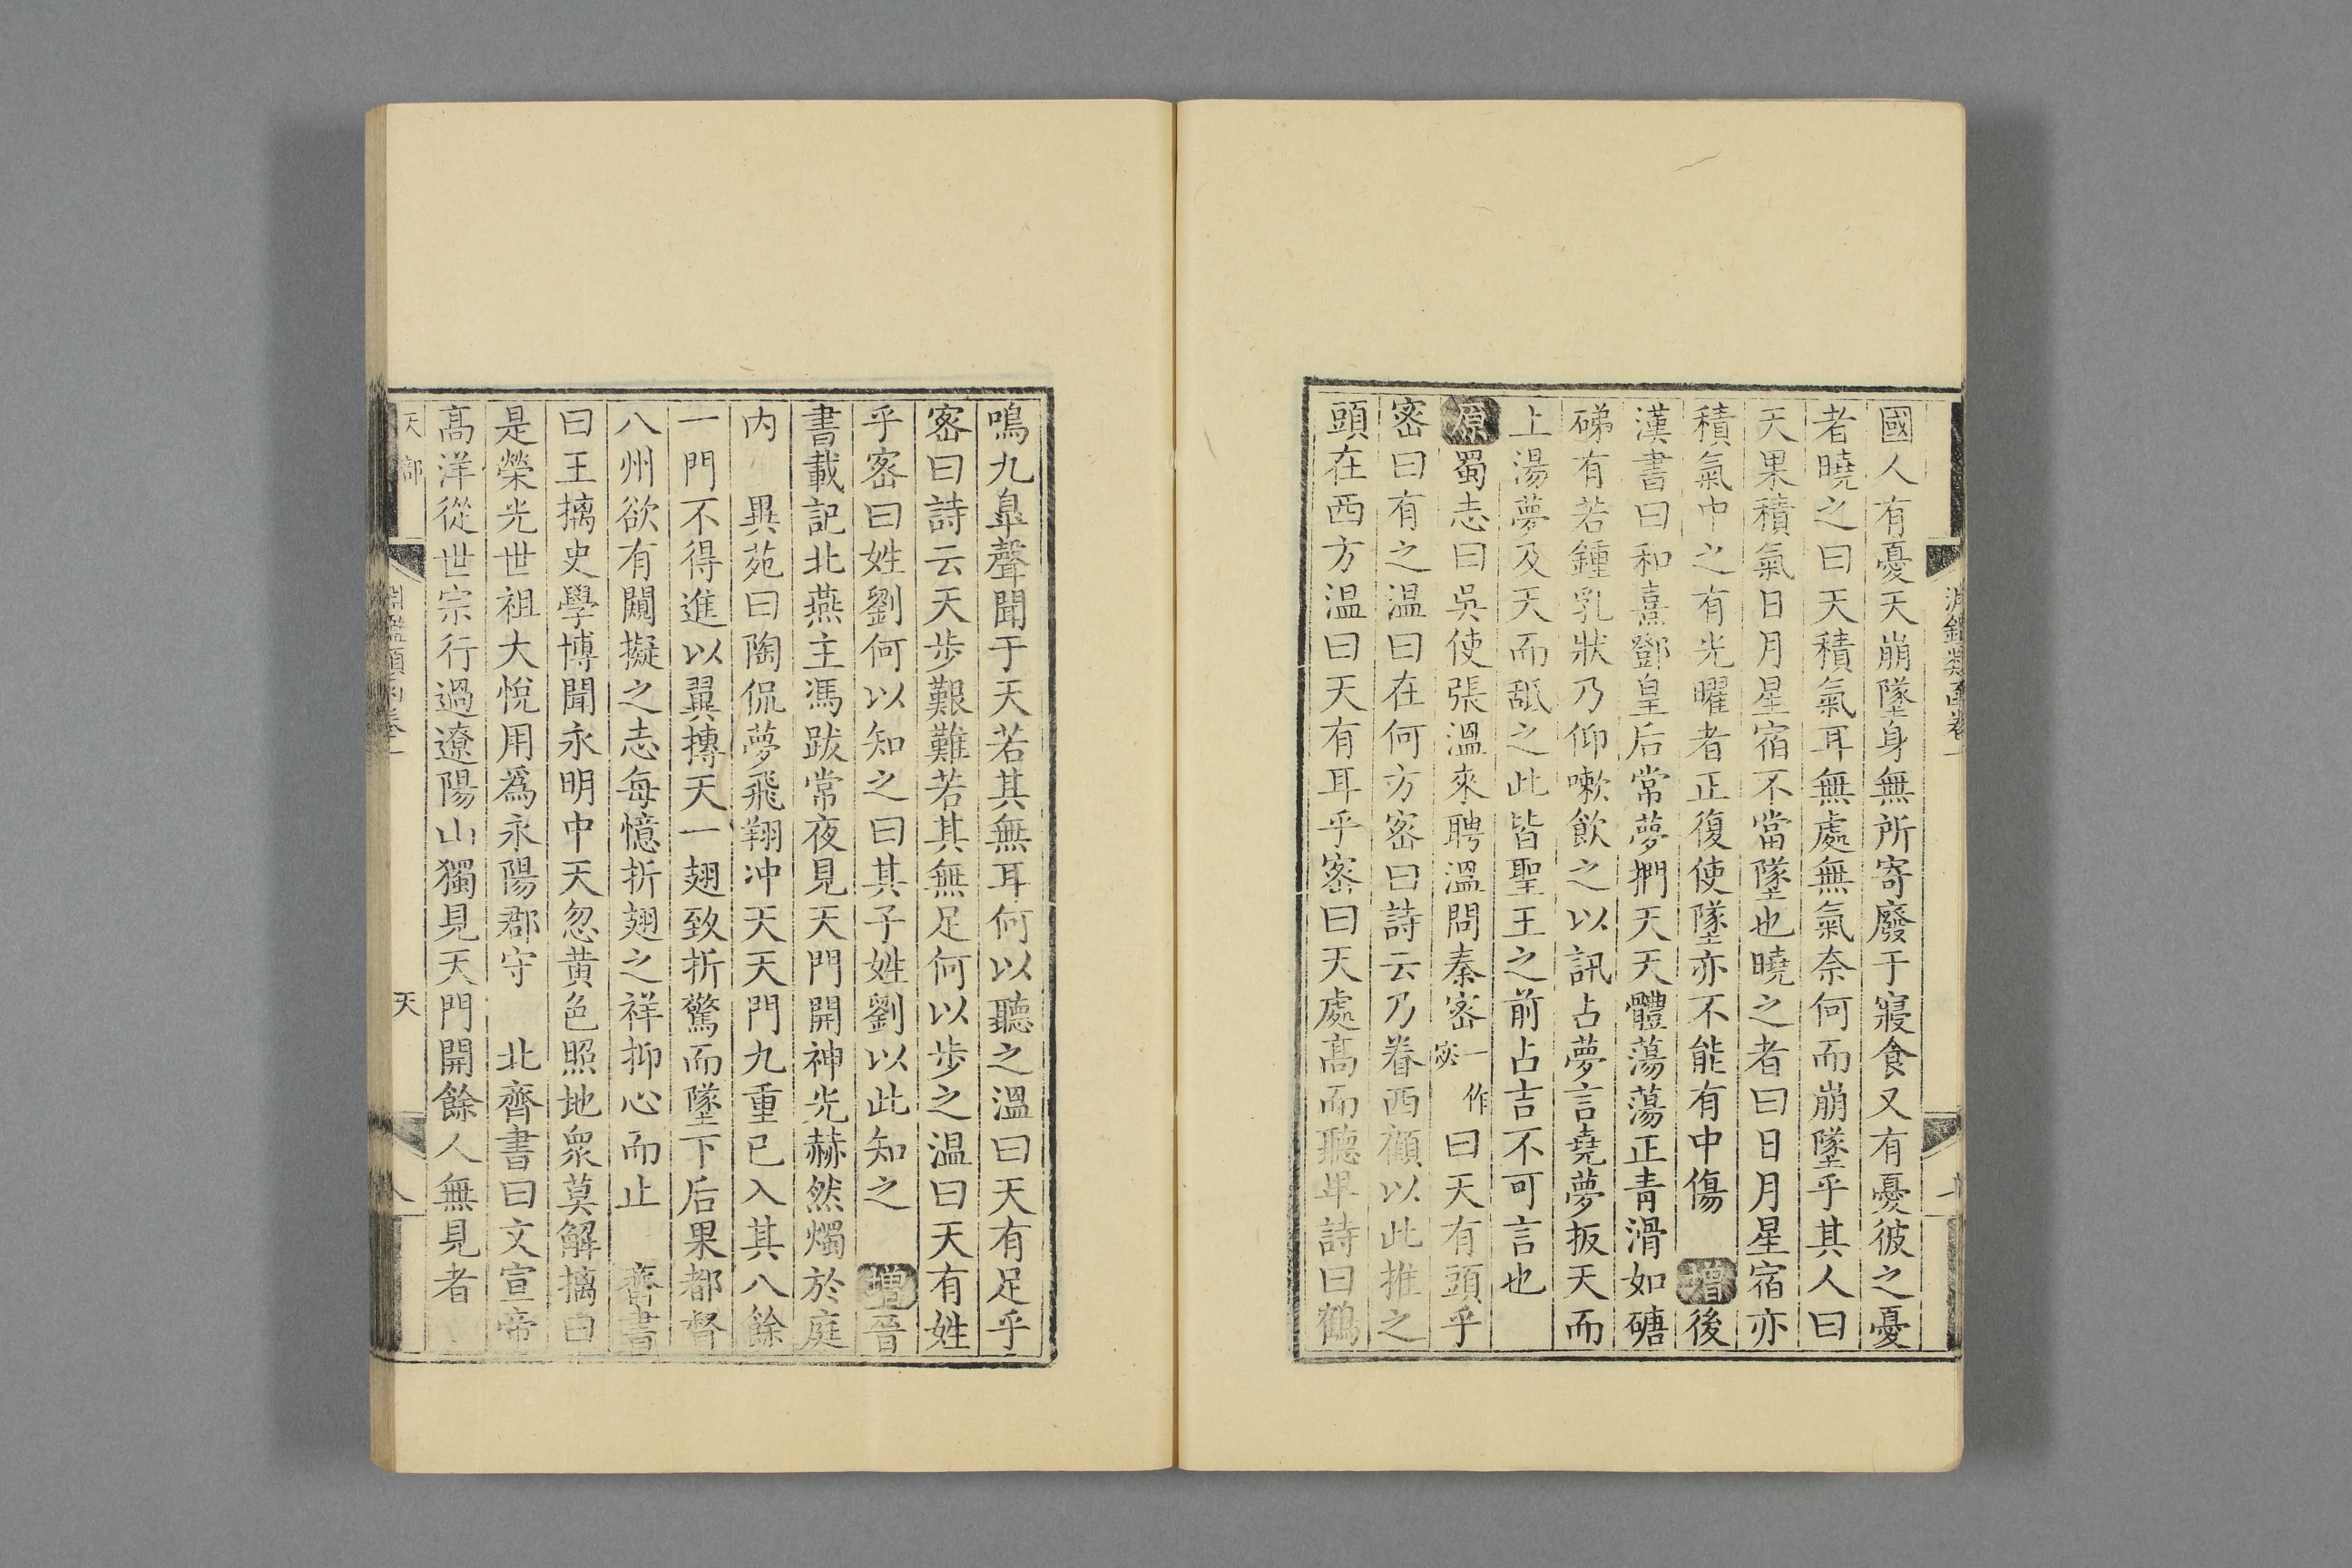 淵鑑類函卷一
國人有憂天崩墜身無所寄廢于寢食又有憂彼之憂
者曉之曰天積氣耳無處無氣奈何而崩墜乎其人曰
天果積氣日月星宿不當墜也曉之者曰日月星宿亦
積氣中之有光曜者正復使墜亦不能有中傷 增後
漢書曰和熹鄧皇后常夢捫天天體蕩蕩正青滑如磄
磃有若鍾乳狀乃仰嗽飲之以訊占夢言堯夢扳天而
上湯夢及天而䑛之此皆聖王之前占吉不可言也
原蜀志曰吳使張溫來聘溫問秦宻一作宓曰天有頭乎
宻曰有之温曰在何方宻曰詩云乃眷西顧以此推之
頭在西方温曰天有耳乎宻曰天處髙而聽卑詩曰鶴
鳴九臯聲聞于天若其無耳何以聽之溫曰天有足乎
宻曰詩云天步艱難若其無足何以步之温曰天有姓
乎宻曰姓劉何以知之曰其子姓劉以此知之 增晉
書載記北燕主馮跋常夜見天門開神光赫然燭於庭
内 異苑曰陶侃夢飛翔冲天天門九重已入其八餘
一門不得進以翼搏天一翅致折驚而墜下后果都督
八州欲有闚擬之志每憶折翅之祥抑心而止 齊書
曰王摛史學博聞永明中天忽黄色照地衆莫解摛曰
是榮光世祖大悅用爲永陽郡守 北齊書曰文宣帝
髙洋從世宗行過遼陽山獨見天門開餘人無見者
天部 淵鑑類函卷一 天 八